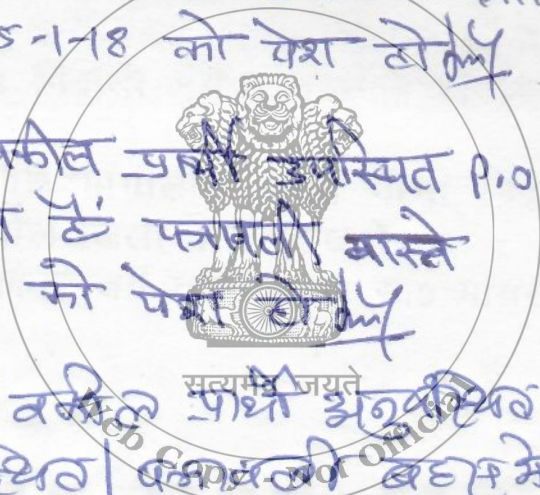 5-1-18 को पेश हो
वकील प्रार्थी उपस्थित P.O
है पत्रावली वास्ते
को पेश हो
सत्यमेव जयते
वकील प्रार्थी अनुपस्थित
Web Copy - Not Official
पत्रावली बहस में